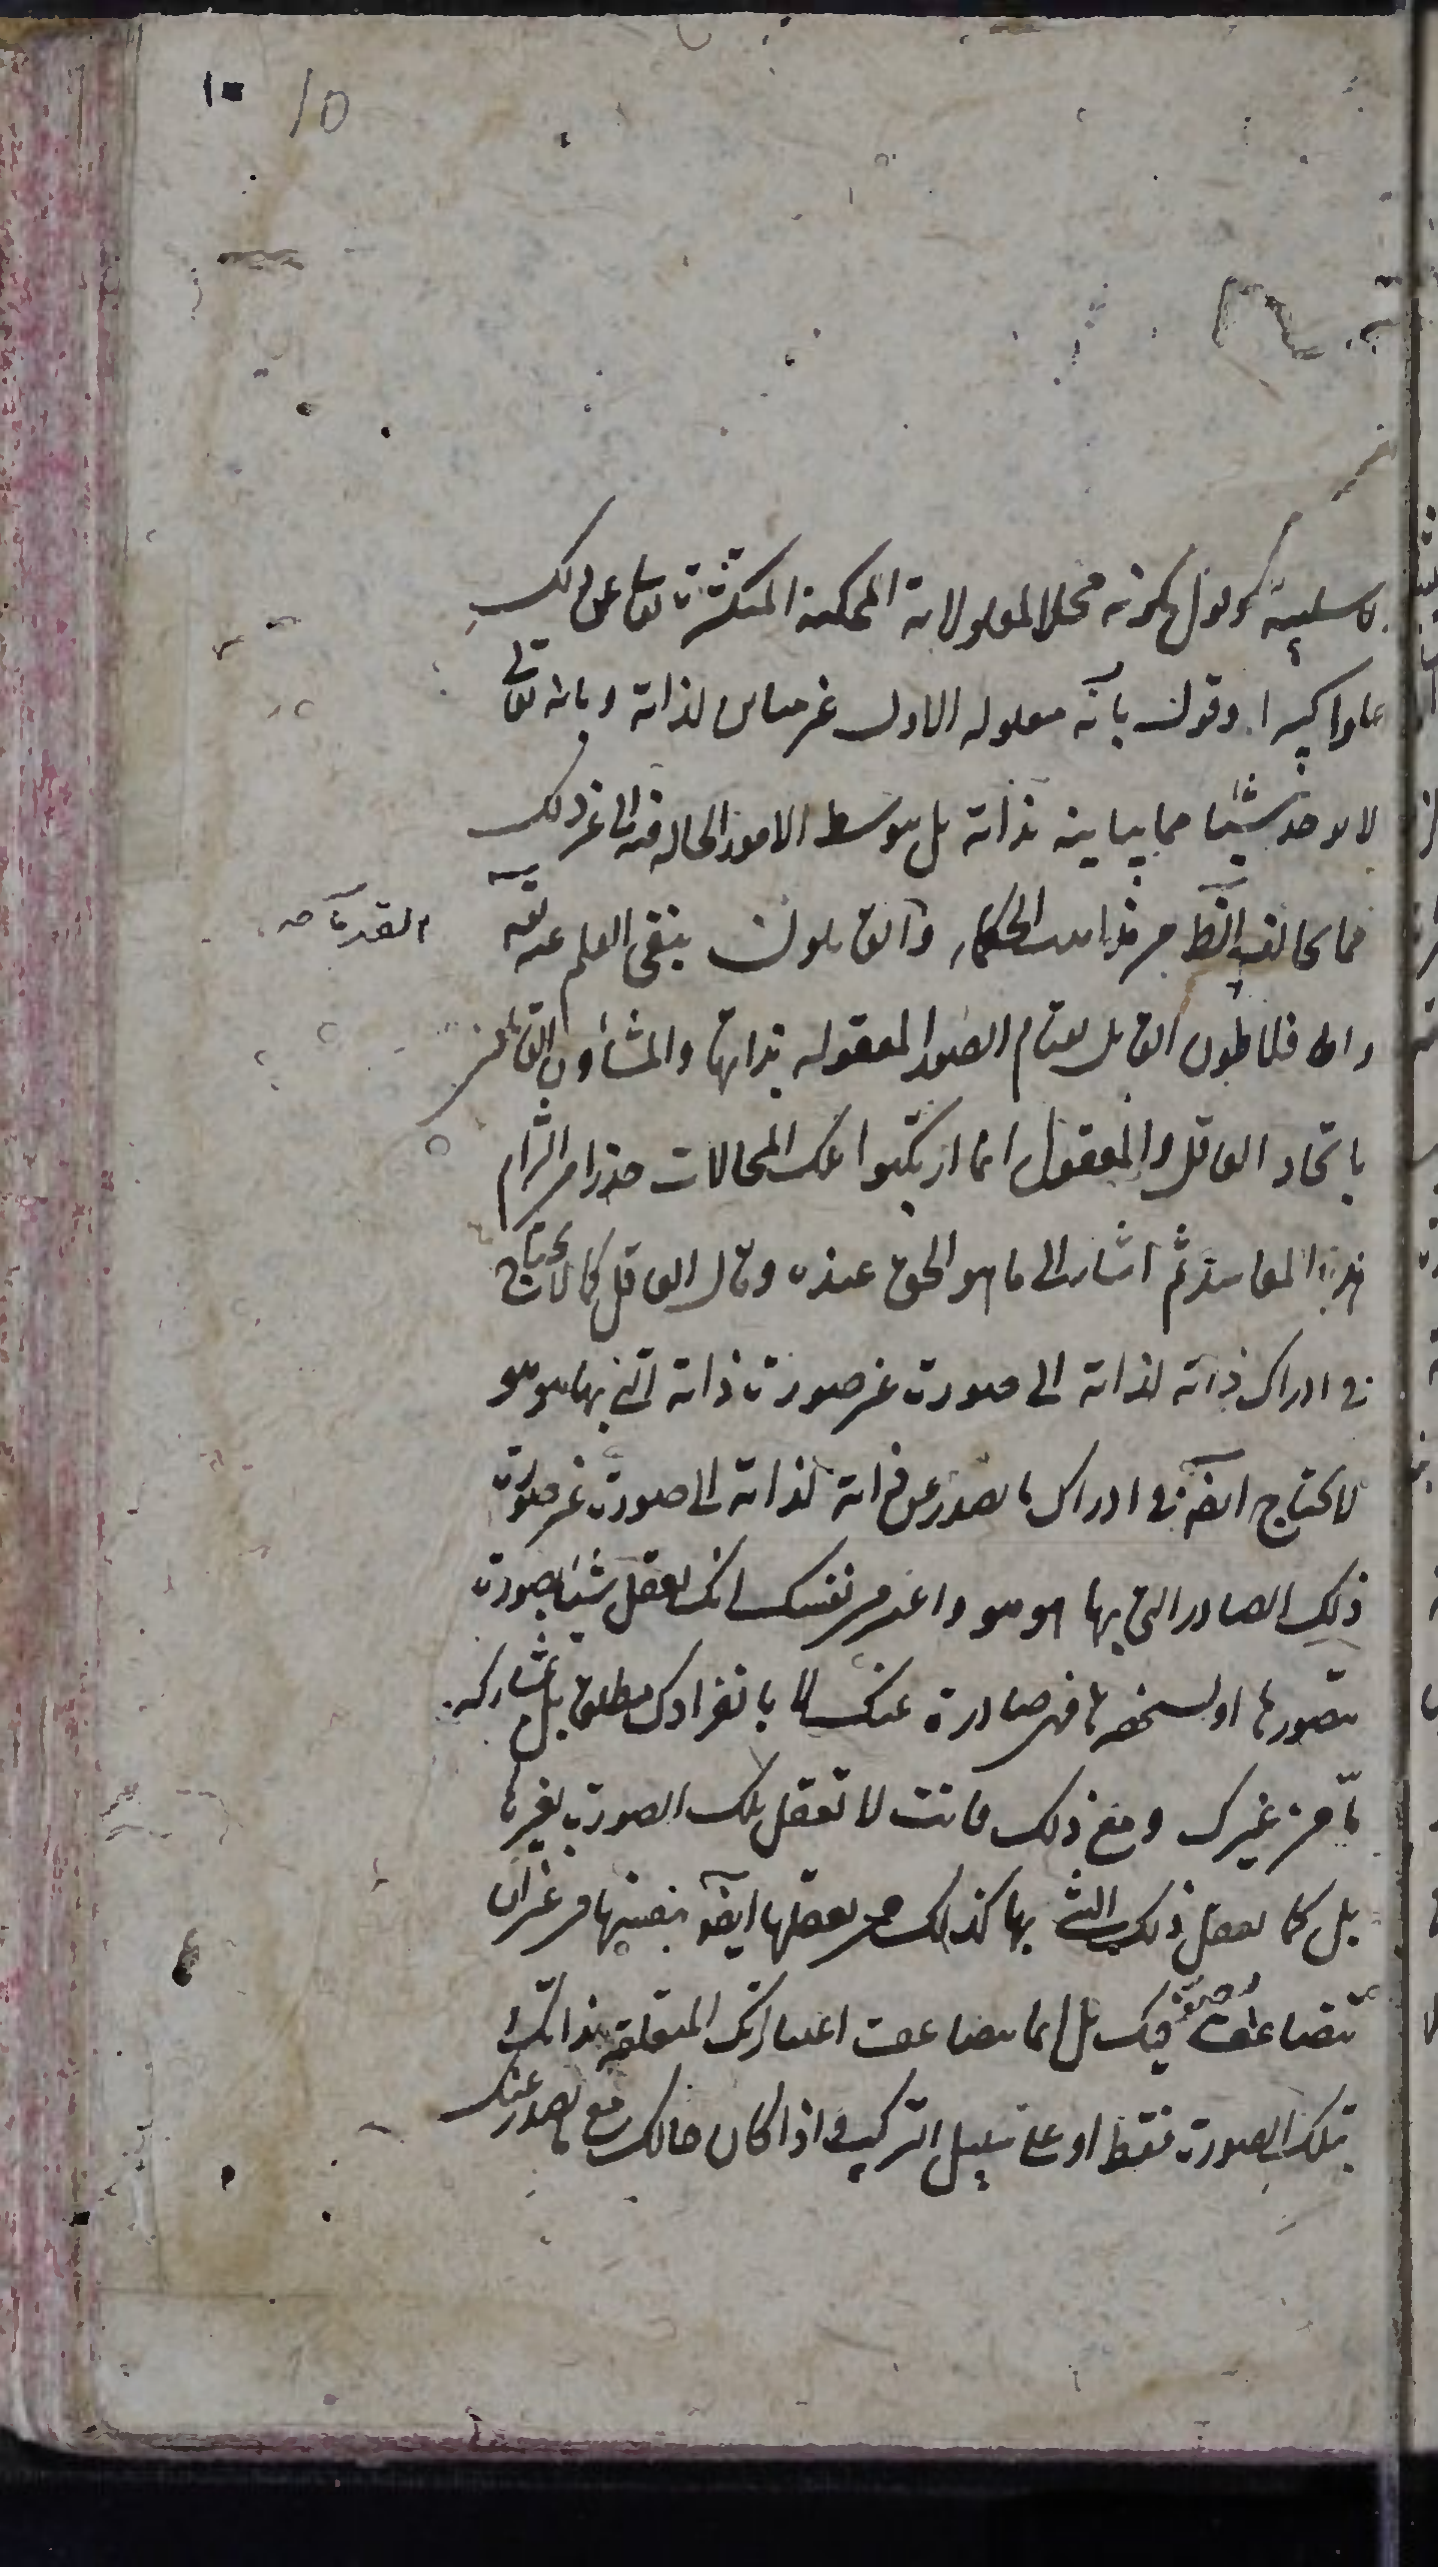 ١٠ 10
ولا سلبية وقول بكونه محلا لمعلولاته الممكنة المتكثرة تعالى عن ذلك
علوا كبيرا وقول بانه معلوله الاول غير مباين لذاته وبانه تعالى
لا يوجد شيئا مما يباينه بذاته بل بتوسط الامور الحالة فيه الى غير ذلك
مما يخالف الظاهر من مذاهب الحكماء والقائلون بنفى العلم عنه تعالى
القدماء صه
وافلاطون القائل بقيام الصور المعقوله بذاتها والمشاؤن القائلون
باتحاد العاقل والمعقول انما ارتكبوا تلك المحالات حذرا من التزام
هذه المفاسد ثم اشار الى ما هو الحق عنده وقال العاقل كما لا يحتاج
فى ادراك ذاته لذاته الى صورة غير صورة ذاته التى بها هو هو
لا يحتاج ايضا فى ادراك ما يصدر عن ذاته لذاته الى صورة غير صورة
ذلك الصادر التى بها هو هو واعتبر من نفسك انك تعقل شيئا بصورة
تتصورها او تستحضرها فهى صادرة عنك لا بانفرادك مطلقا بل بمشاركة
ما من غيرك ومع ذلك فانت لا تعقل تلك الصورة بغيرها
بل كما تعقل ذلك الشئ بها كذلك تعقلها ايضا بنفسها من غير ان
تتضاعف صور فيك بل انما تتضاعف اعتباراتك المتعلقة بذاتك او
بتلك الصورة فقط او على سبيل التركيب واذا كان حالك مع ما يصدر عنك